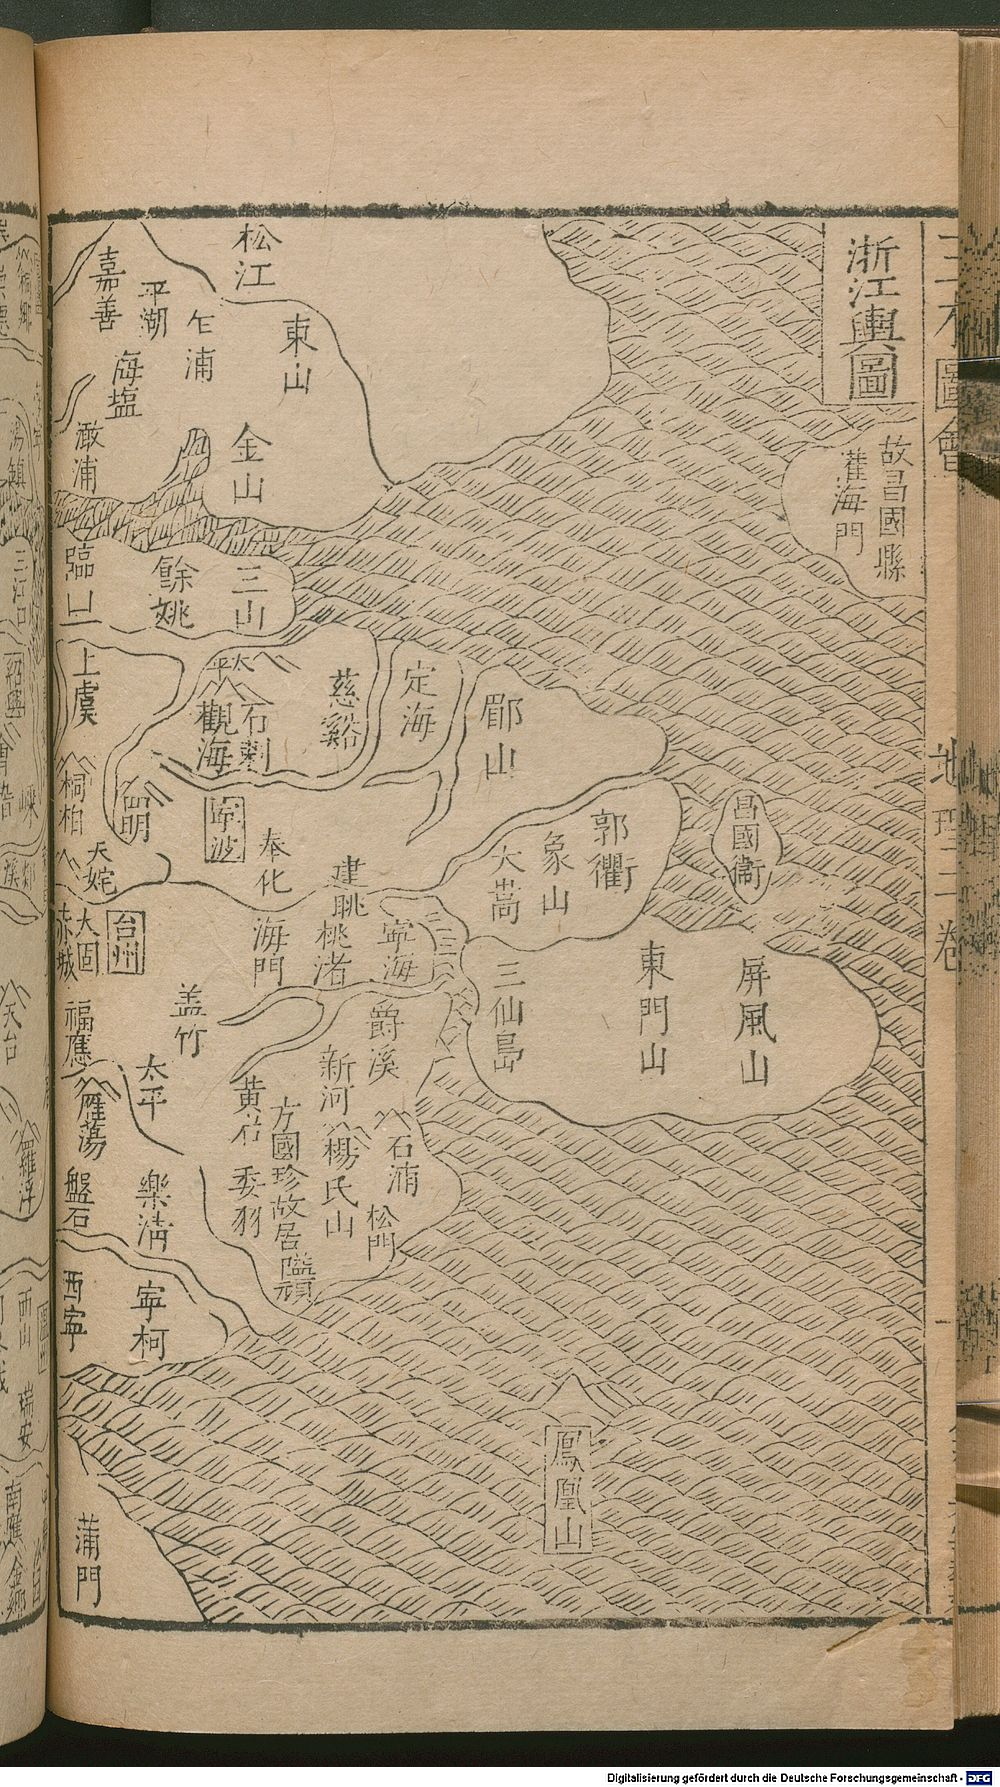 浙江輿圖
故昌國縣
灌海門
松江
東山
乍浦
金山
平湖
嘉善
海塩
澉浦
三山
餘姚
臨山
上虞
太平
慈谿
定海
石剌
觀海
鄞山
桐柏
四明
寧波
奉化
天姥
昌國衞
郭衢
象山
大嵩
建跳
桃渚
寧海
海門
台州
大固
赤城
屏風山
東門山
三仙島
盖竹
福應
爵溪
新河
太平
黃岩
方國珍故居
隘頑
雁蕩
楊氏山
石浦
松門
委羽
盤石
樂清
西寧
寧柯
鳳凰山
蒲門
圖會
地理三卷
三江口
紹興
天台
羅浮
西山
瑞安
Digitalisierung gefördert durch die Deutsche Forschungsgemeinschaft - DFG